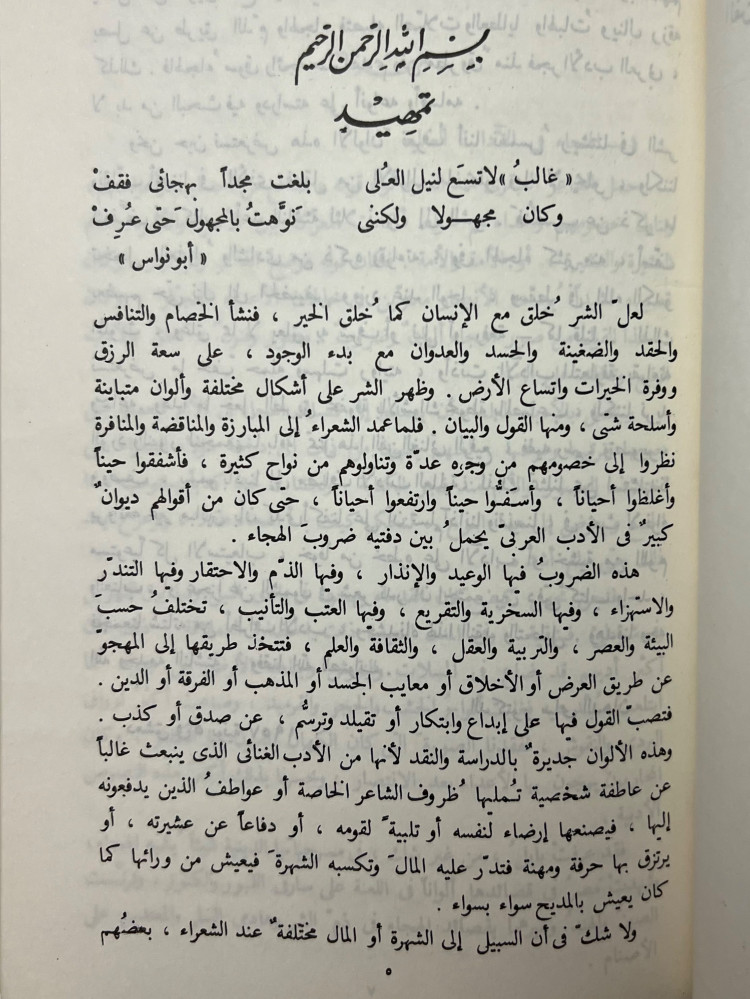 بسم الله الرحمن الرحيم
تمهيد
« غالبُ » لا تسعَ لنيل العُلى بلغت مجداً بهجائى فقفْ
وكان مجهولا ولكننى نَوَّهتُ بالمجهول حَتى عُرِفْ
« أبو نواس »
لعلّ الشر خُلق مع الإنسان كما خُلق الخير ، فنشأ الخصام والتنافس
والحقد والضغينة والحسد والعدوان مع بدء الوجود ، على سعة الرزق
ووفرة الخيرات واتساع الأرض . وظهر الشر على أشكال مختلفة وألوان متباينة
وأسلحة شتى ، ومنها القول والبيان . فلما عمد الشعراءُ إلى المبارزة والمناقضة والمنافرة
نظروا إلى خصومهم من وجوه عدّة وتناولوهم من نواح كثيرة ، فأشفقوا حيناً
وأغلظوا أحياناً ، وأسَفُّوا حيناً وارتفعوا أحياناً ، حتى كان من أقوالهم ديوانٌ
كبيرٌ فى الأدب العربىّ يحملُ بين دفتيه ضروبَ الهجاء .
هذه الضروبُ فيها الوعيد والإنذار ، وفيها الذمّ والاحتقار وفيها التندّر
والاستهزاء ، وفيها السخرية والتقريع ، وفيها العتب والتأنيب ، تختلفُ حسبَ
البيئة والعصر ، والتربية والعقل ، والثقافة والعلم ، فتتخذ طريقها إلى المهجوّ
عن طريق العرض أو الأخلاق أو معايب الجسد أو المذهب أو الفرقة أو الدين .
فتصبّ القول فيها على إبداع وابتكار أو تقيلد وترسُّم ، عن صدق أو كذب .
وهذه الألوان جديرةٌ بالدراسة والنقد لأنها من الأدب الغنائى الذى ينبعث غالباً
عن عاطفة شخصية تُمليها ظُروف الشاعر الخاصة أو عواطفُ الذين يدفعونه
إليها ، فيصنعها إرضاء لنفسه أو تلبيةً لقومه ، أو دفاعاً عن عشيرته ، أو
يرتزق بها حرفة ومهنة فتدرّ عليه المالَ وتكسبه الشهرةَ فيعيش من ورائها كما
كان يعيش بالمديح سواء بسواء .
ولا شكّ فى أن السبيل إلى الشهرة أو المال مختلفةٌ عند الشعراء ، بعضُهم
٥